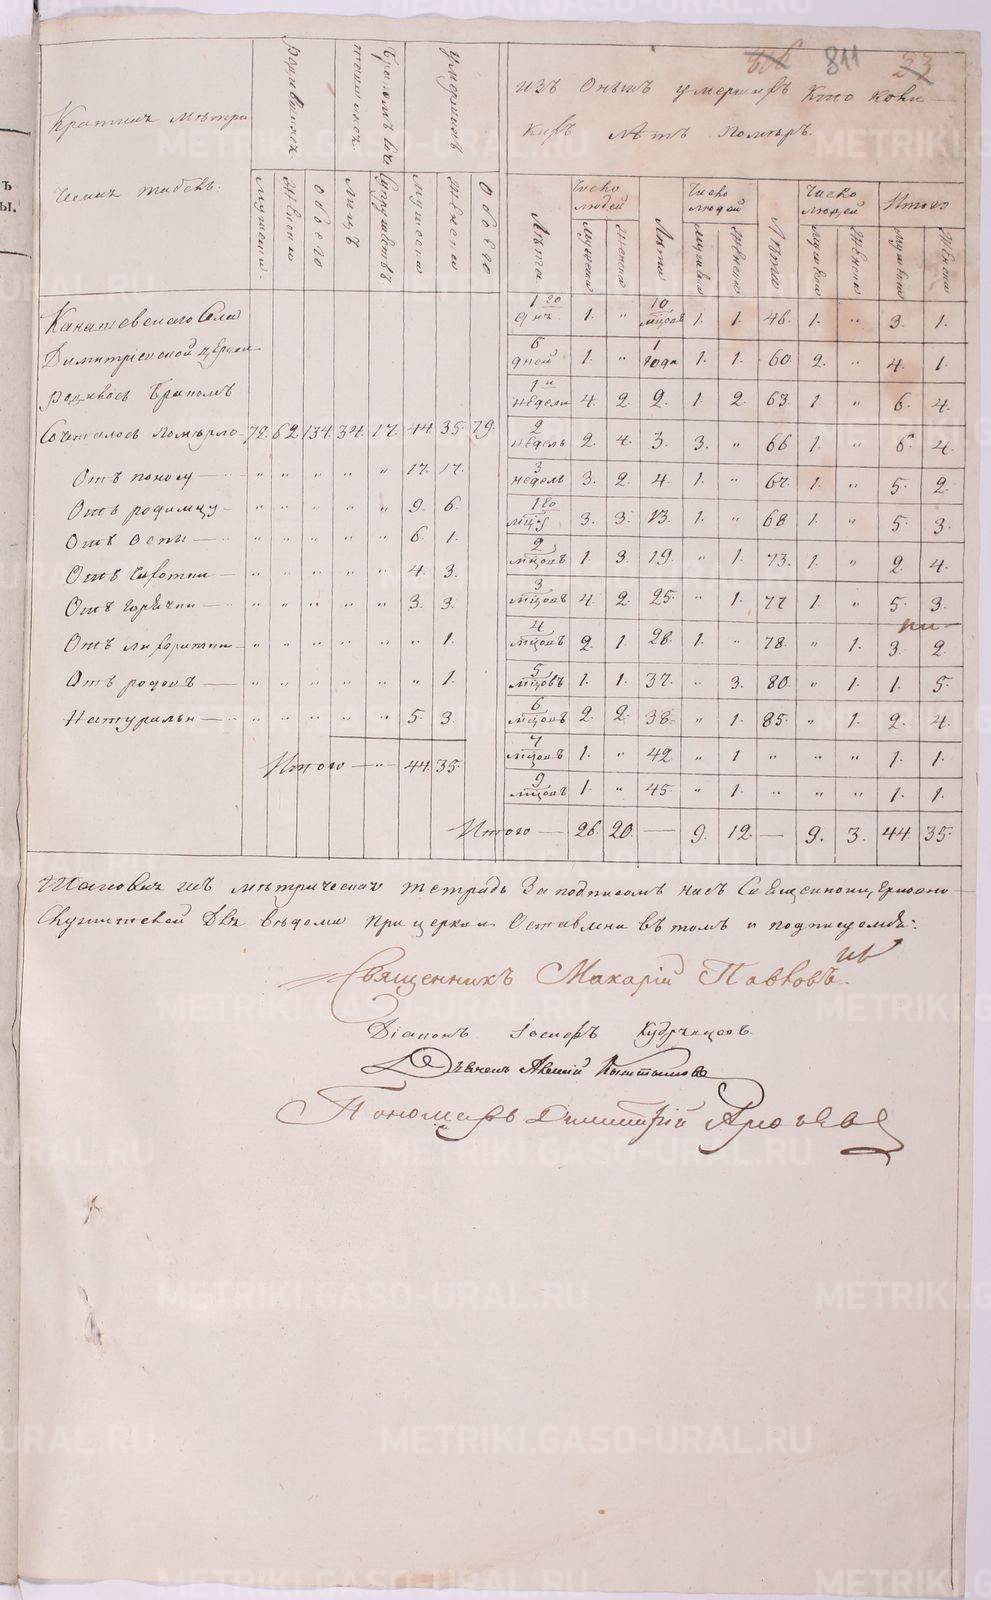 811 23
Краткихъ метри
ческих табель.
родившихся
бракомъ сочетавшихся
умершихъ
изъ оныхъ умершихъ кто коли
кихъ лѣтъ померъ.
мужеска женска обоего лицъ супружествъ мужеска женска обоего
Лѣта число людей Лѣта число людей Лѣта число людей Итого
мужеска женска мужеска женска мужеска женска мужеска женска
Канашевскаго села 1го дня 1. " 10 мцовъ 1. 1. 46. 1. " 3. 1.
Димитріевской церкви 6 дней 1. " 1 года 1. 1. 60. 2. " 4. 1.
родилось бракомъ 1й недели 4. 2. 2. 1. 2. 63. 1. " 6. 4.
Сочеталось Померло 72. 62. 134. 34. 17. 44. 35. 79. 2 недель 2. 4. 3. 3. " 66. 1. " 6. 4.
Отъ поносу " " " " " 17. 17. 3 недель 3. 2. 4. 1. " 67. 1. " 5. 2.
Отъ родимцу " " " " " 9. 6. 1го мцу 3. 3. 13. 1. " 68. 1. " 5. 3.
Отъ оспы " " " " " 6. 1. 2 мцовъ 1. 3. 19. " 1. 73. 1. " 2. 4.
Отъ чахотки " " " " " 4. 3. 3 мцовъ 4. 2. 25. " 1. 77. 1. " 5. 3.
Отъ горячки " " " " " 3. 3. 4 мцовъ 2. 1. 28. 1. " 78. " 1. 3. 2.
Отъ лихорадки " " " " " " 1. 5 мцовъ 1. 1. 37. " 3. 80. " 1. 1. 5.
Отъ родовъ " " " " " " 1. 6 мцовъ 2. 2. 38. " 1. 85. " 1. 2. 4.
Натурально " " " " " 5. 3. 7 мцовъ 1. " 42. " 1 " " " 1. 1.
Итого 44. 35. 9 мцовъ 1. " 45. " 1. " " " 1. 1.
Итого 26. 20. 9. 12. 9. 3. 44. 35.
Таковых же метрическая тетрадь за подписомъ насъ Священноцерковно
Служителей для ведома при церкви оставлена въ томъ и подписуемся:
Священникъ Макарій Павловъ
Діаконъ Іосифъ Кудрявцовъ
Дьячекъ
Пономарь Димитрій
METRIKI.GASO-URAL.RU